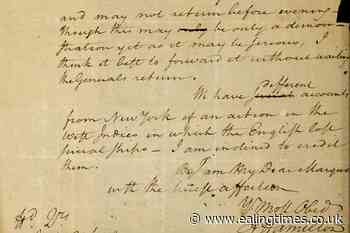 and may not return before evening
though this may only be only a demon-
stration yet as it may be serious, I
think it best to forward it without waiting
the Generals return.
We have different several accounts
from New York of an action in the
West Indies in which the English lost
several ships – I am inclined to credit
them.
I am My Dear Marquis
with the truest affection
Yr Most Obed
A Hamilton
Hd Qrs
www.ealingtimes.co.uk